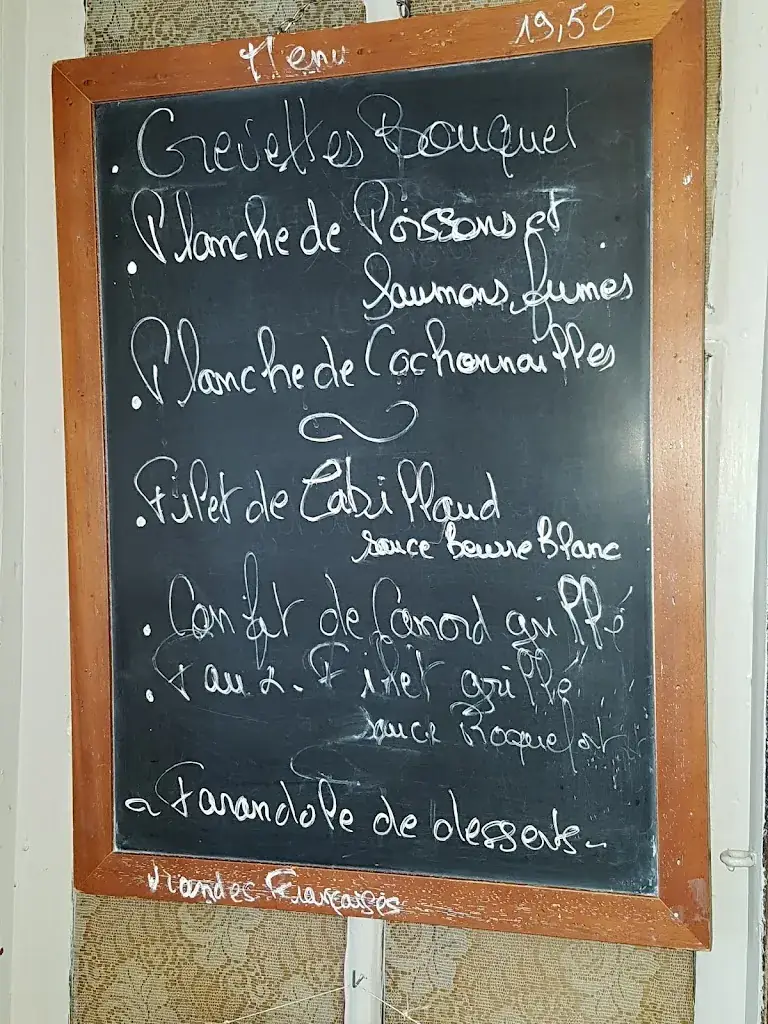 Menu 19,50
. Crevettes Bouquet
. Planche de Poissons et
Saumons fumés
. Planche de Cochonnailles
. Filet de Cabillaud
sauce Beurre Blanc
. Confit de Canard grillé
. Faux-Filet grillé
sauce Roquefort
~ Farandole de desserts ~
Viandes Françaises